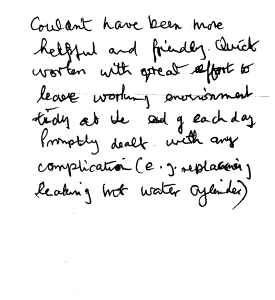 Couldnt have been more
helpful and friendly. Quick
worker with great effort to
leave working environment
tidy at the end of each day
Promptly dealt with any
complication (e.g. replacing
leaking hot water cylinder)